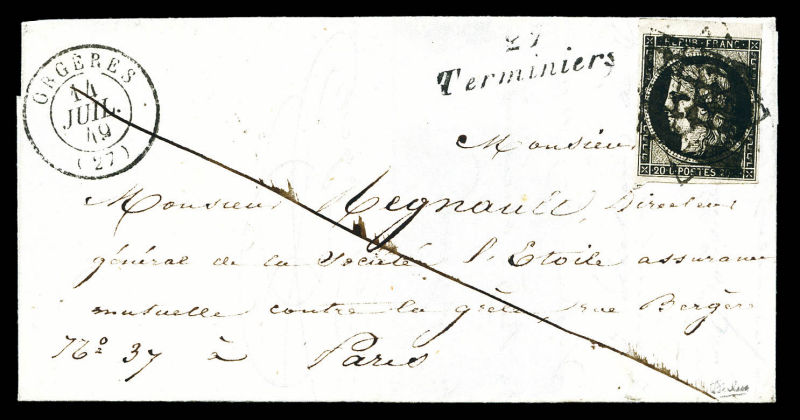 ORGÈRES
14
JUIL.
49
(27)
27
Terminiers
REPUB. FRANC.
20 C. POSTES 20 C.
Monsieur
Monsieur Regnault, Directeur
général de la Société l'Etoile assurance
mutuelle contre la grêle, rue Bergère
N.º 37 à Paris